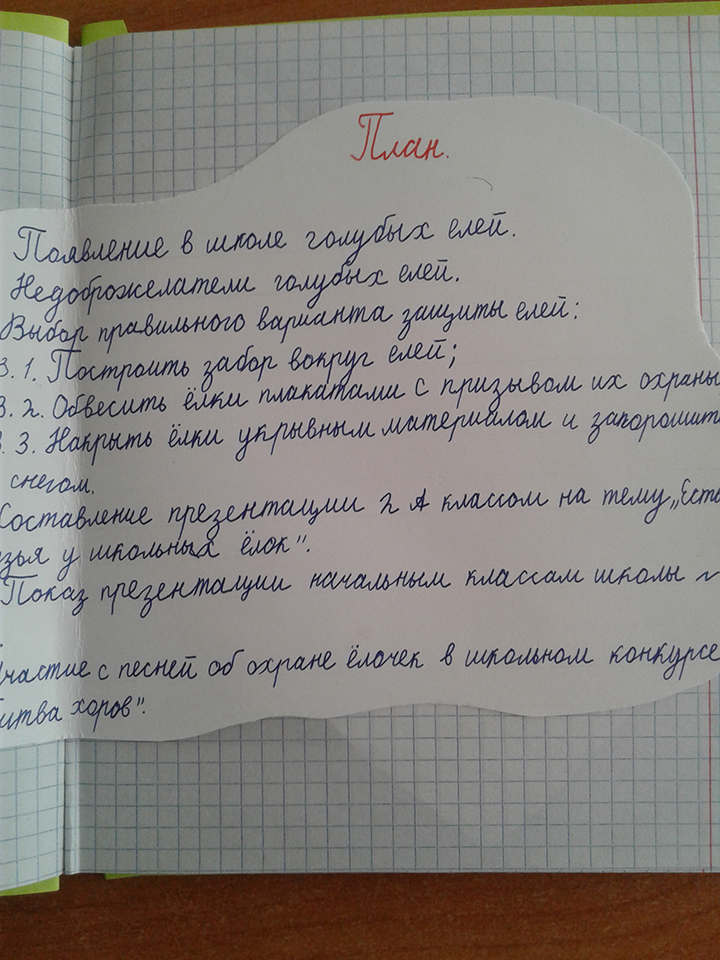 План.
Появление в школе голубых елей.
Недоброжелатели голубых елей.
Выбор правильного варианта защиты елей:
3. 1. Построить забор вокруг елей;
3. 2. Обвесить ёлки плакатами с призывом их охраны
. 3. Накрыть ёлки укрывным материалом и запорошить
снегом.
Составление презентации 2 А классом на тему „Есть
узья у школьных ёлок".
Показ презентации начальным классам школы
Участие с песней об охране ёлочек в школьном конкурсе
битва хоров".